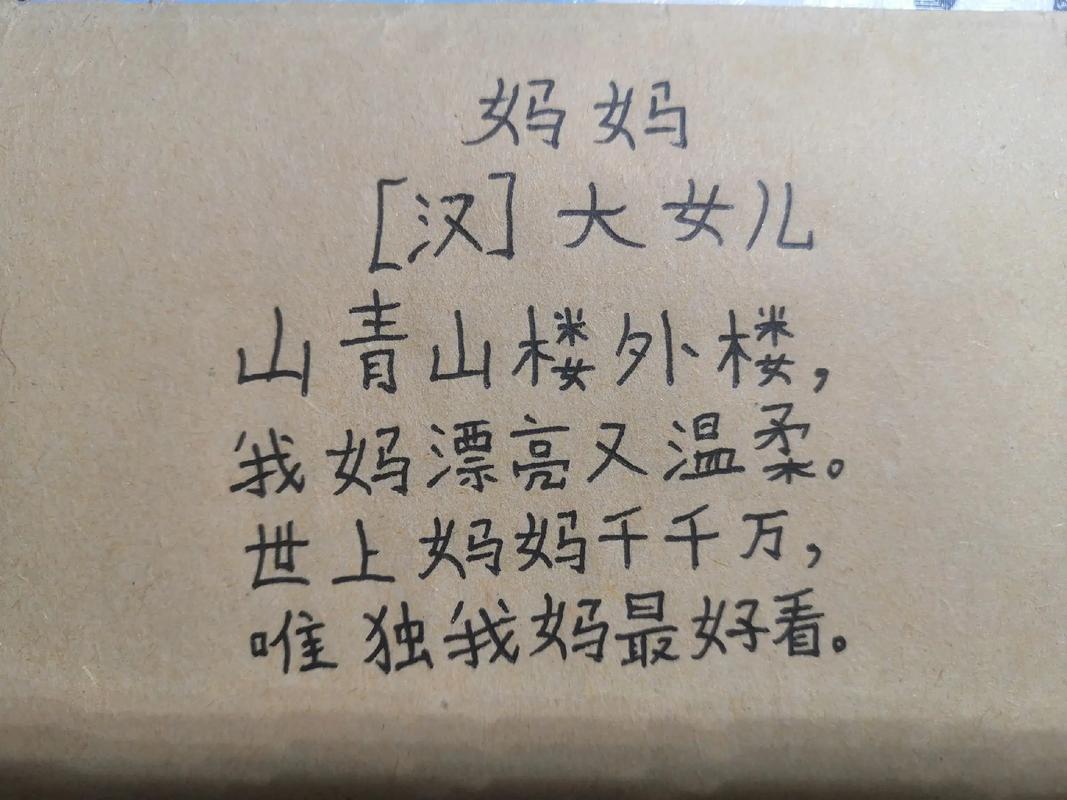 妈妈
[汉]大女儿
山青山楼外楼,
我妈漂亮又温柔。
世上妈妈千千万,
唯独我妈最好看。